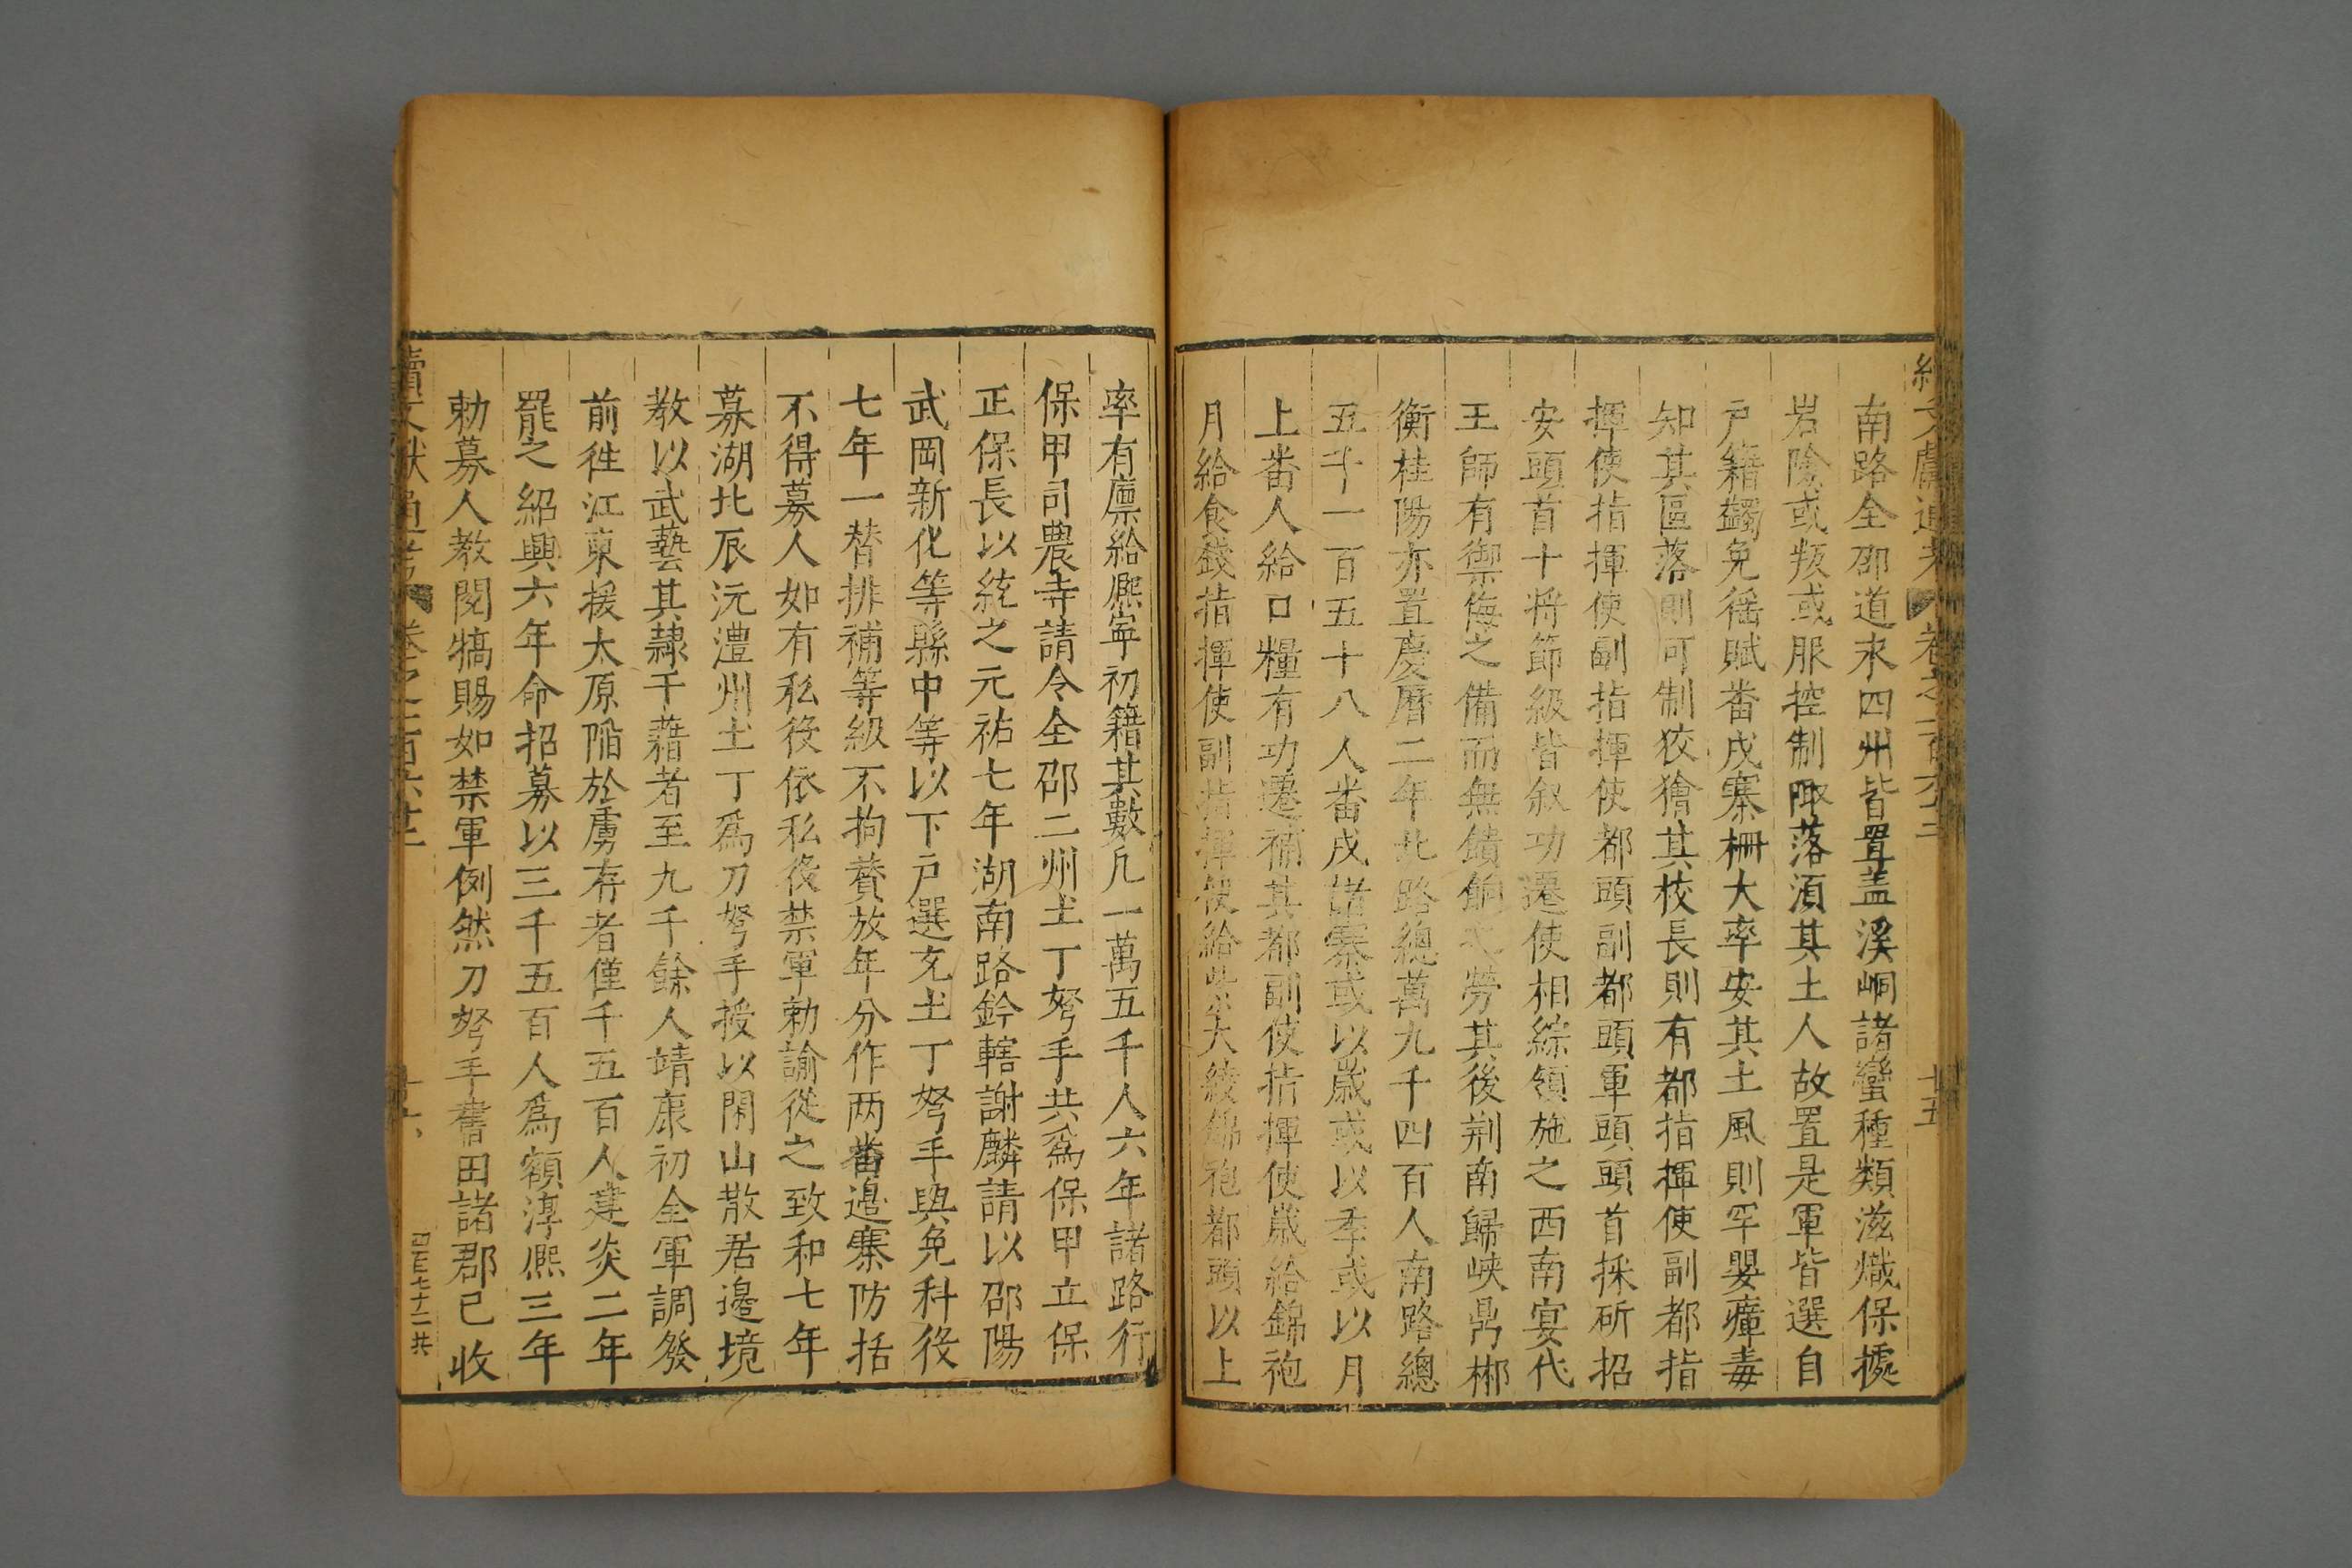 南路全邵道來四州皆置盖溪峒諸蠻種類滋熾保據
岩險或叛或服控制陬落湏其土人故置是軍皆選自
户籍蠲免徭賦番戍寨柵大率安其土風則罕嬰瘴毒
知其區落則可制狡獪其校長則有都指揮使副都指
揮使指揮使副指揮使都頭副都頭軍頭頭首採斫招
安頭首十將節級皆叙功遷使相綜領施之西南宴代
王師有禦侮之備而無饋餉之勞其後荆南歸峽鼎郴
衡桂陽亦置慶曆二年北路總萬九千四百人南路總
五千一百五十八人番戍諸寨或以歲或以季或以月
上番人給口糧有功遷補其都副使指揮使歲給錦袍
月給食錢指揮使副指揮使給紫大綾綿袍都頭以上
率有廪給熈寜初籍其數凡一萬五千人六年諸路行
保甲司農寺請令全邵二州土丁弩手共為保甲立保
正保長以綂之元祐七年湖南路鈐轄謝麟請以邵陽
武岡新化等縣中等以下户選充土丁弩手與免科役
七年一替排補等級不拘賛放年分作两番邉寨防括
不得募人如有私役依私役禁軍勅諭從之致和七年
募湖北辰沅澧州土丁爲刀弩手授以閑山散居邉境
教以武藝其隷千藉者至九千餘人靖康初全軍調發
前徃江東援太原䧟於虜存者僅千五百人建炎二年
罷之紹興六年命招募以三千五百人爲額淳熈三年
勅募人教閱犒賜如禁軍例然刀弩手舊田諸郡已收
四百七十二共